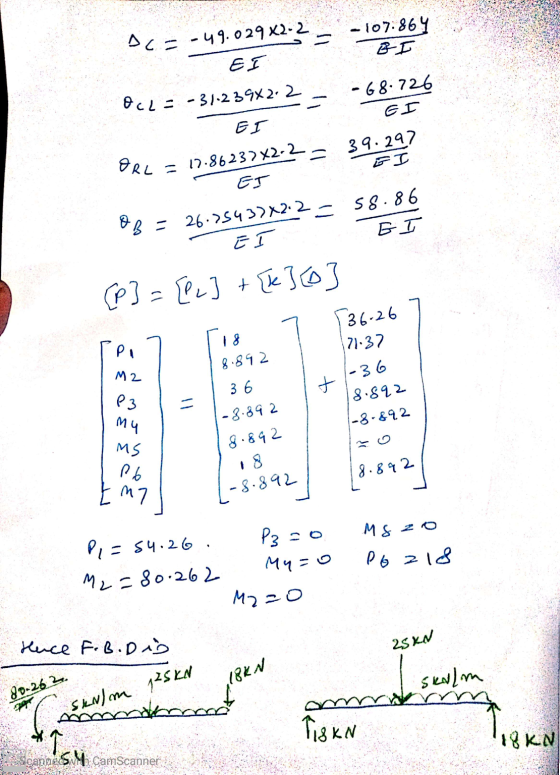 ΔC = -49.029x2.2 / EI = -107.864 / EI
θCL = -31.239x2.2 / EI = -68.726 / EI
θRL = 17.86237x2.2 / EI = 39.297 / EI
θB = 26.75437x2.2 / EI = 58.86 / EI
[P] = [PL] + [K][Δ]
[P1 M2 P3 M4 M5 P6 M7] = [18 8.892 36 -8.892 8.892 18 -8.892] + [36.26 71.37 -36 8.892 -8.892 ≈0 8.892]
P1 = 54.26. P3 = 0 M5 = 0
M2 = 80.262 M4 = 0 P6 = 18
M7 = 0
Hence F.B.D is
25 KN
80.262 5 KN/m 25 KN 18 KN 5 KN/m
54 18 KN 18 KN
Scanned with CamScanner